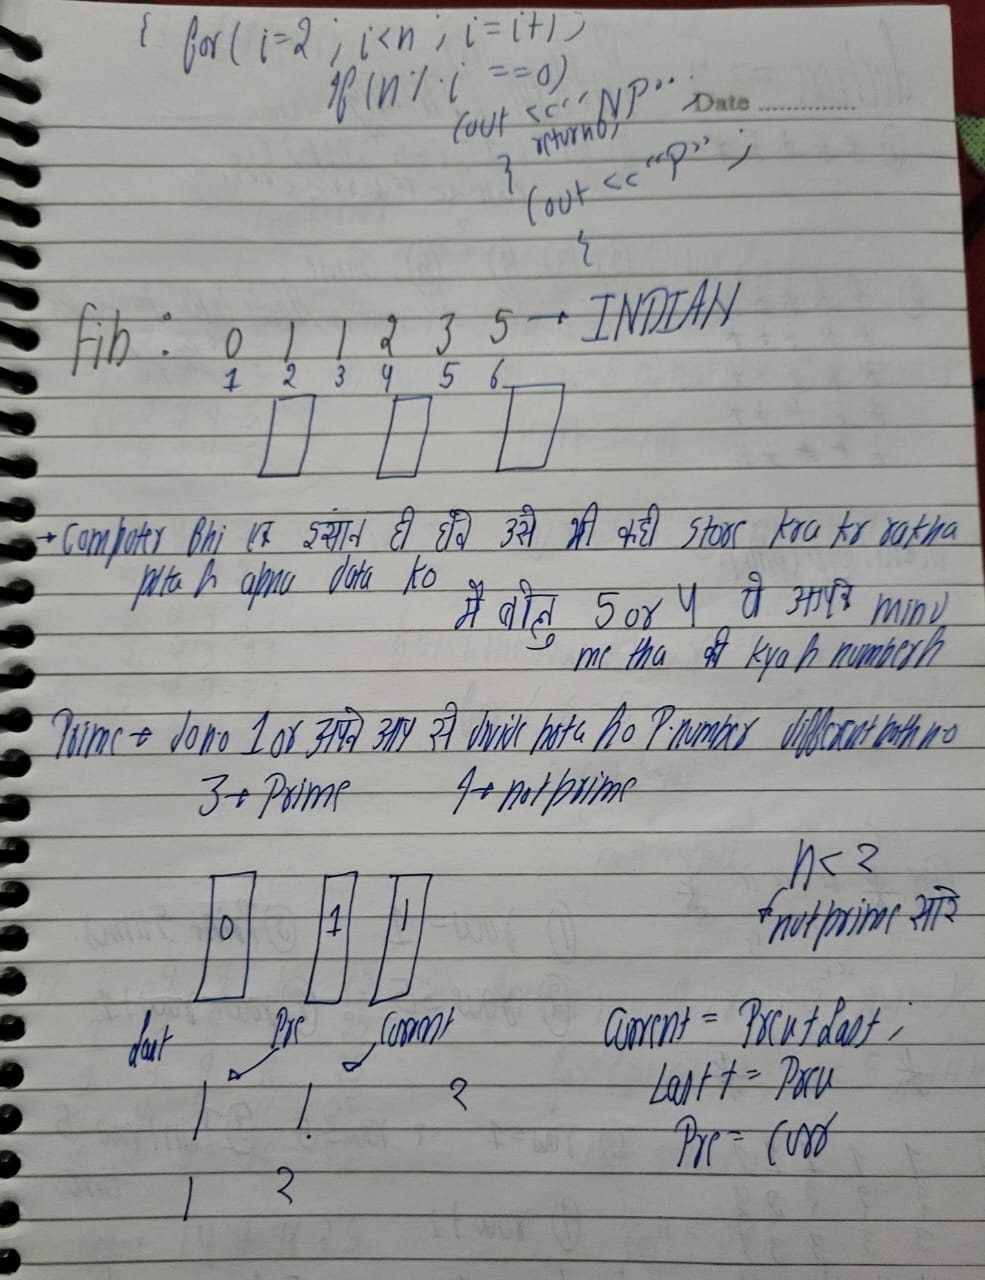 { for( i=2 ; i<n ; i=i+1)
if (n % i ==0)
cout << "NP" ; Date ..............
return 0;
}
cout << "P" ;
{
fib : 0 1 1 2 3 5 → INDIAN
1 2 3 4 5 6
→ Computer Bhi एक इंसान ही है उसे भी कही store kra kr rakhna
pdta h apna data ko
मैं बोलु 5 or 4 तो आपके mind
me tha की kya h number h
Prime → do no 1 or अपने आप से divide hota ho P.number different both no
3 → Prime 4 → not prime
n < 2
not prime सारे
0 1 1
Last Pre Current
Current = Prev + Last ;
1 1 2
Last = Prev
Pre = Curr
1 2